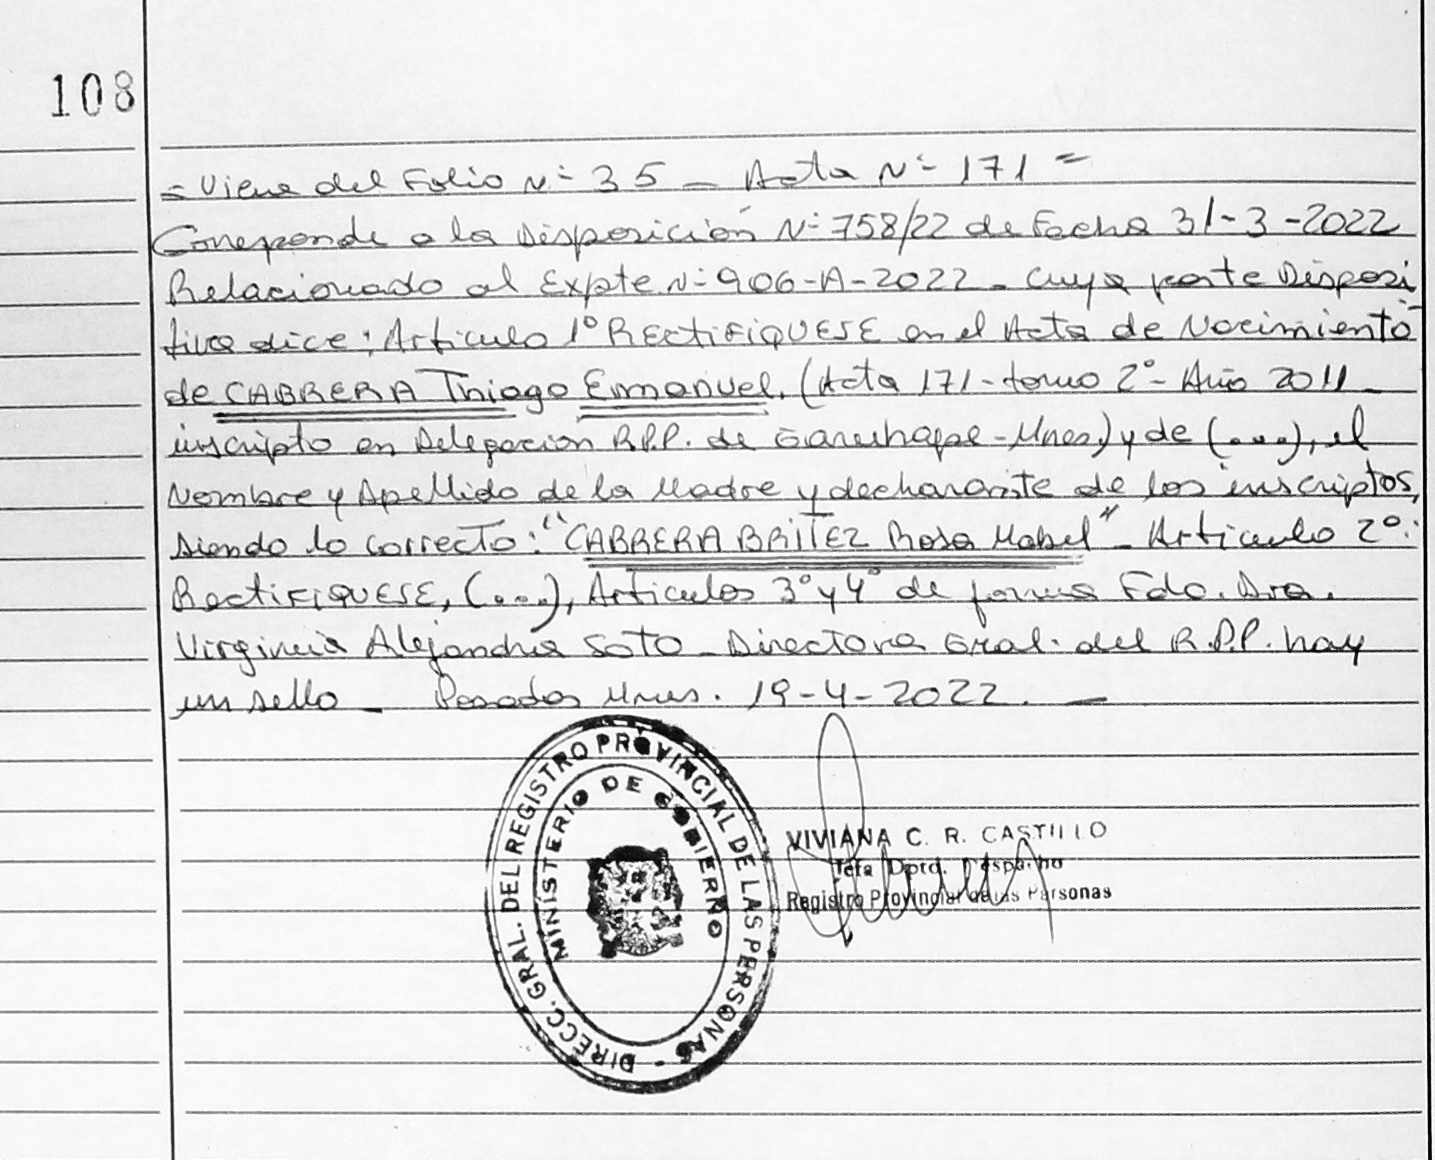 108
= Viene del Folio Nº 35 - Acta Nº 171 =
Corresponde a la Disposición Nº 758/22 de Fecha 31-3-2022
Relacionado al Expte. Nº 906-A-2022 - cuya parte Disposi
tiva dice: Artículo 1º RECTIFIQUESE en el Acta de Nacimiento
de CABRERA Thiago Emanuel, (Acta 171 - tomo 2º - Año 2011
inscripto en Delegación R.P.P. de Garuhapé - Mnes.) y de (...), el
Nombre y Apellido de la Madre y declarante de los inscriptos,
siendo lo correcto: "CABRERA BRITEZ Rosa Mabel" - Artículo 2º:
RECTIFIQUESE, (...), Artículos 3º y 4º de forma Fdo. Dra.
Virginia Alejandra Soto - Directora Gral. del R.P.P. hay
un sello - Posadas Mnes. 19-4-2022. -
DIRECC. GRAL. DEL REGISTRO PROVINCIAL DE LAS PERSONAS -
MINISTERIO DE GOBIERNO
VIVIANA C. R. CASTILLO
Jefa Dpto. Despacho
Registro Provincial de las Personas